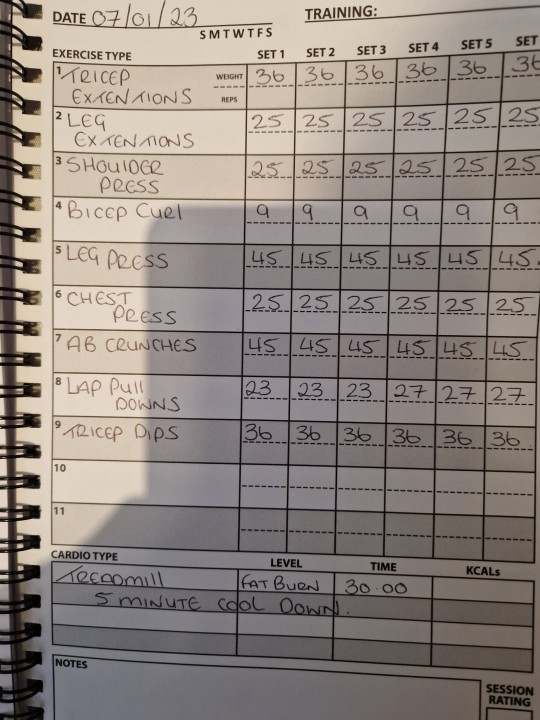 DATE 07/01/23 TRAINING:
S M T W T F S
EXERCISE TYPE SET 1 SET 2 SET 3 SET 4 SET 5 SET
1 TRICEP WEIGHT 36 36 36 36 36 36
EXTENTIONS REPS
2 LEG 25 25 25 25 25 25
EXTENTIONS
3 SHOULDER 25 25 25 25 25 25
PRESS
4 BICEP CURL 9 9 9 9 9 9
5 LEG PRESS 45 45 45 45 45 45.
6 CHEST 25 25 25 25 25 25
PRESS
7 AB CRUNCHES 45 45 45 45 45 45
8 LAP PULL 23 23 23 27 27 27
DOWNS
9 TRICEP DIPS 36 36 36 36 36 36
10
11
CARDIO TYPE LEVEL TIME KCALs
TREADMILL FAT BURN 30.00
5 MINUTE COOL DOWN.
NOTES
SESSION
RATING